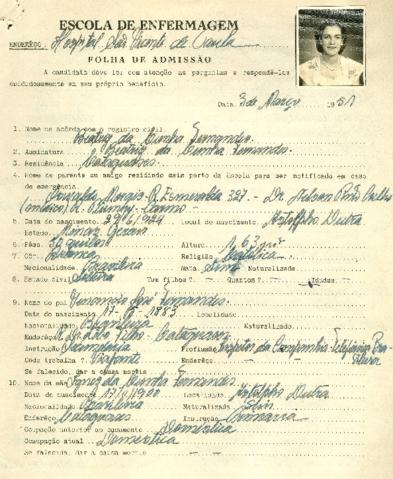 ESCOLA DE ENFERMAGEM
ENDERÊÇO: Hospital São Vicente de Paula
FOLHA DE ADMISSÃO
A candidata deve ler com atenção as perguntas e respondê-las
cuidadosamente em seu próprio benefício.
Data 3 de Março 1951
1. Nome de acôrdo com o registro civil
Beatriz da Cunha Fernandes
2. Assinatura Beatriz da Cunha Fernandes
3. Residência Cataguases
4. Nome de parente ou amigo residindo mais perto da Escola para ser notificado em caso
de emergência
R. Esmeralda 327 - Dr. Nelson
5. Data do nascimento Local do nascimento Astolpho Dutra
Estado Minas Gerais
6. Pêso quilos Altura 1,63
7. Côr Branca Religião Católica
Nacionalidade Brasileira Nata Naturalizada
8. Estado civil Solteira Tem filhos? Quantos? Idades
9. Nome do pai José Fernandes
Data do nascimento 1883 Localidade
Nacionalidade Naturalizado
Enderêço Cataguases
Instrução Profissão da Companhia Telefônica
Onde trabalha? Enderêço
Se falecido, dar a causa mortis
10. Nome da mãe da Cunha Fernandes
Data do nascimento 1900 Localidade Astolpho Dutra
Nacionalidade Brasileira Naturalizada
Enderêço Cataguases Instrução Primária
Ocupação anterior ao casamento Doméstica
Ocupação atual Doméstica
Se falecida, dar a causa mortis